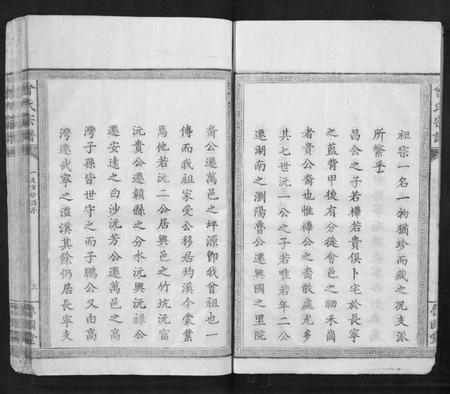 曾氏宗譜
祖宗一名一物猶珍而藏之况支派
所繫乎
昌公之子若樺若貴俱卜宅於長寧
之藍背甲後有分徙會邑之晒禾崗
者貴公裔也惟樺公之裔散處尤多
其七世沅一公之子若唯若年二公
遷湖南之瀏陽魯公遷興國之里院
裔公遷萬邑之坪源即我曾祖也一
傳而我祖家受公移居均溪今棠業
焉他若沅二公居興邑之竹坑沅富
沅貴公遷贛縣之分水沅興沅祿公
遷安遠之白沙沅芳公遷萬邑之高
灣子孫皆世守之而子鵬公又由高
灣遷武寧之溫溪其餘仍居長寧支
曾氏宗譜